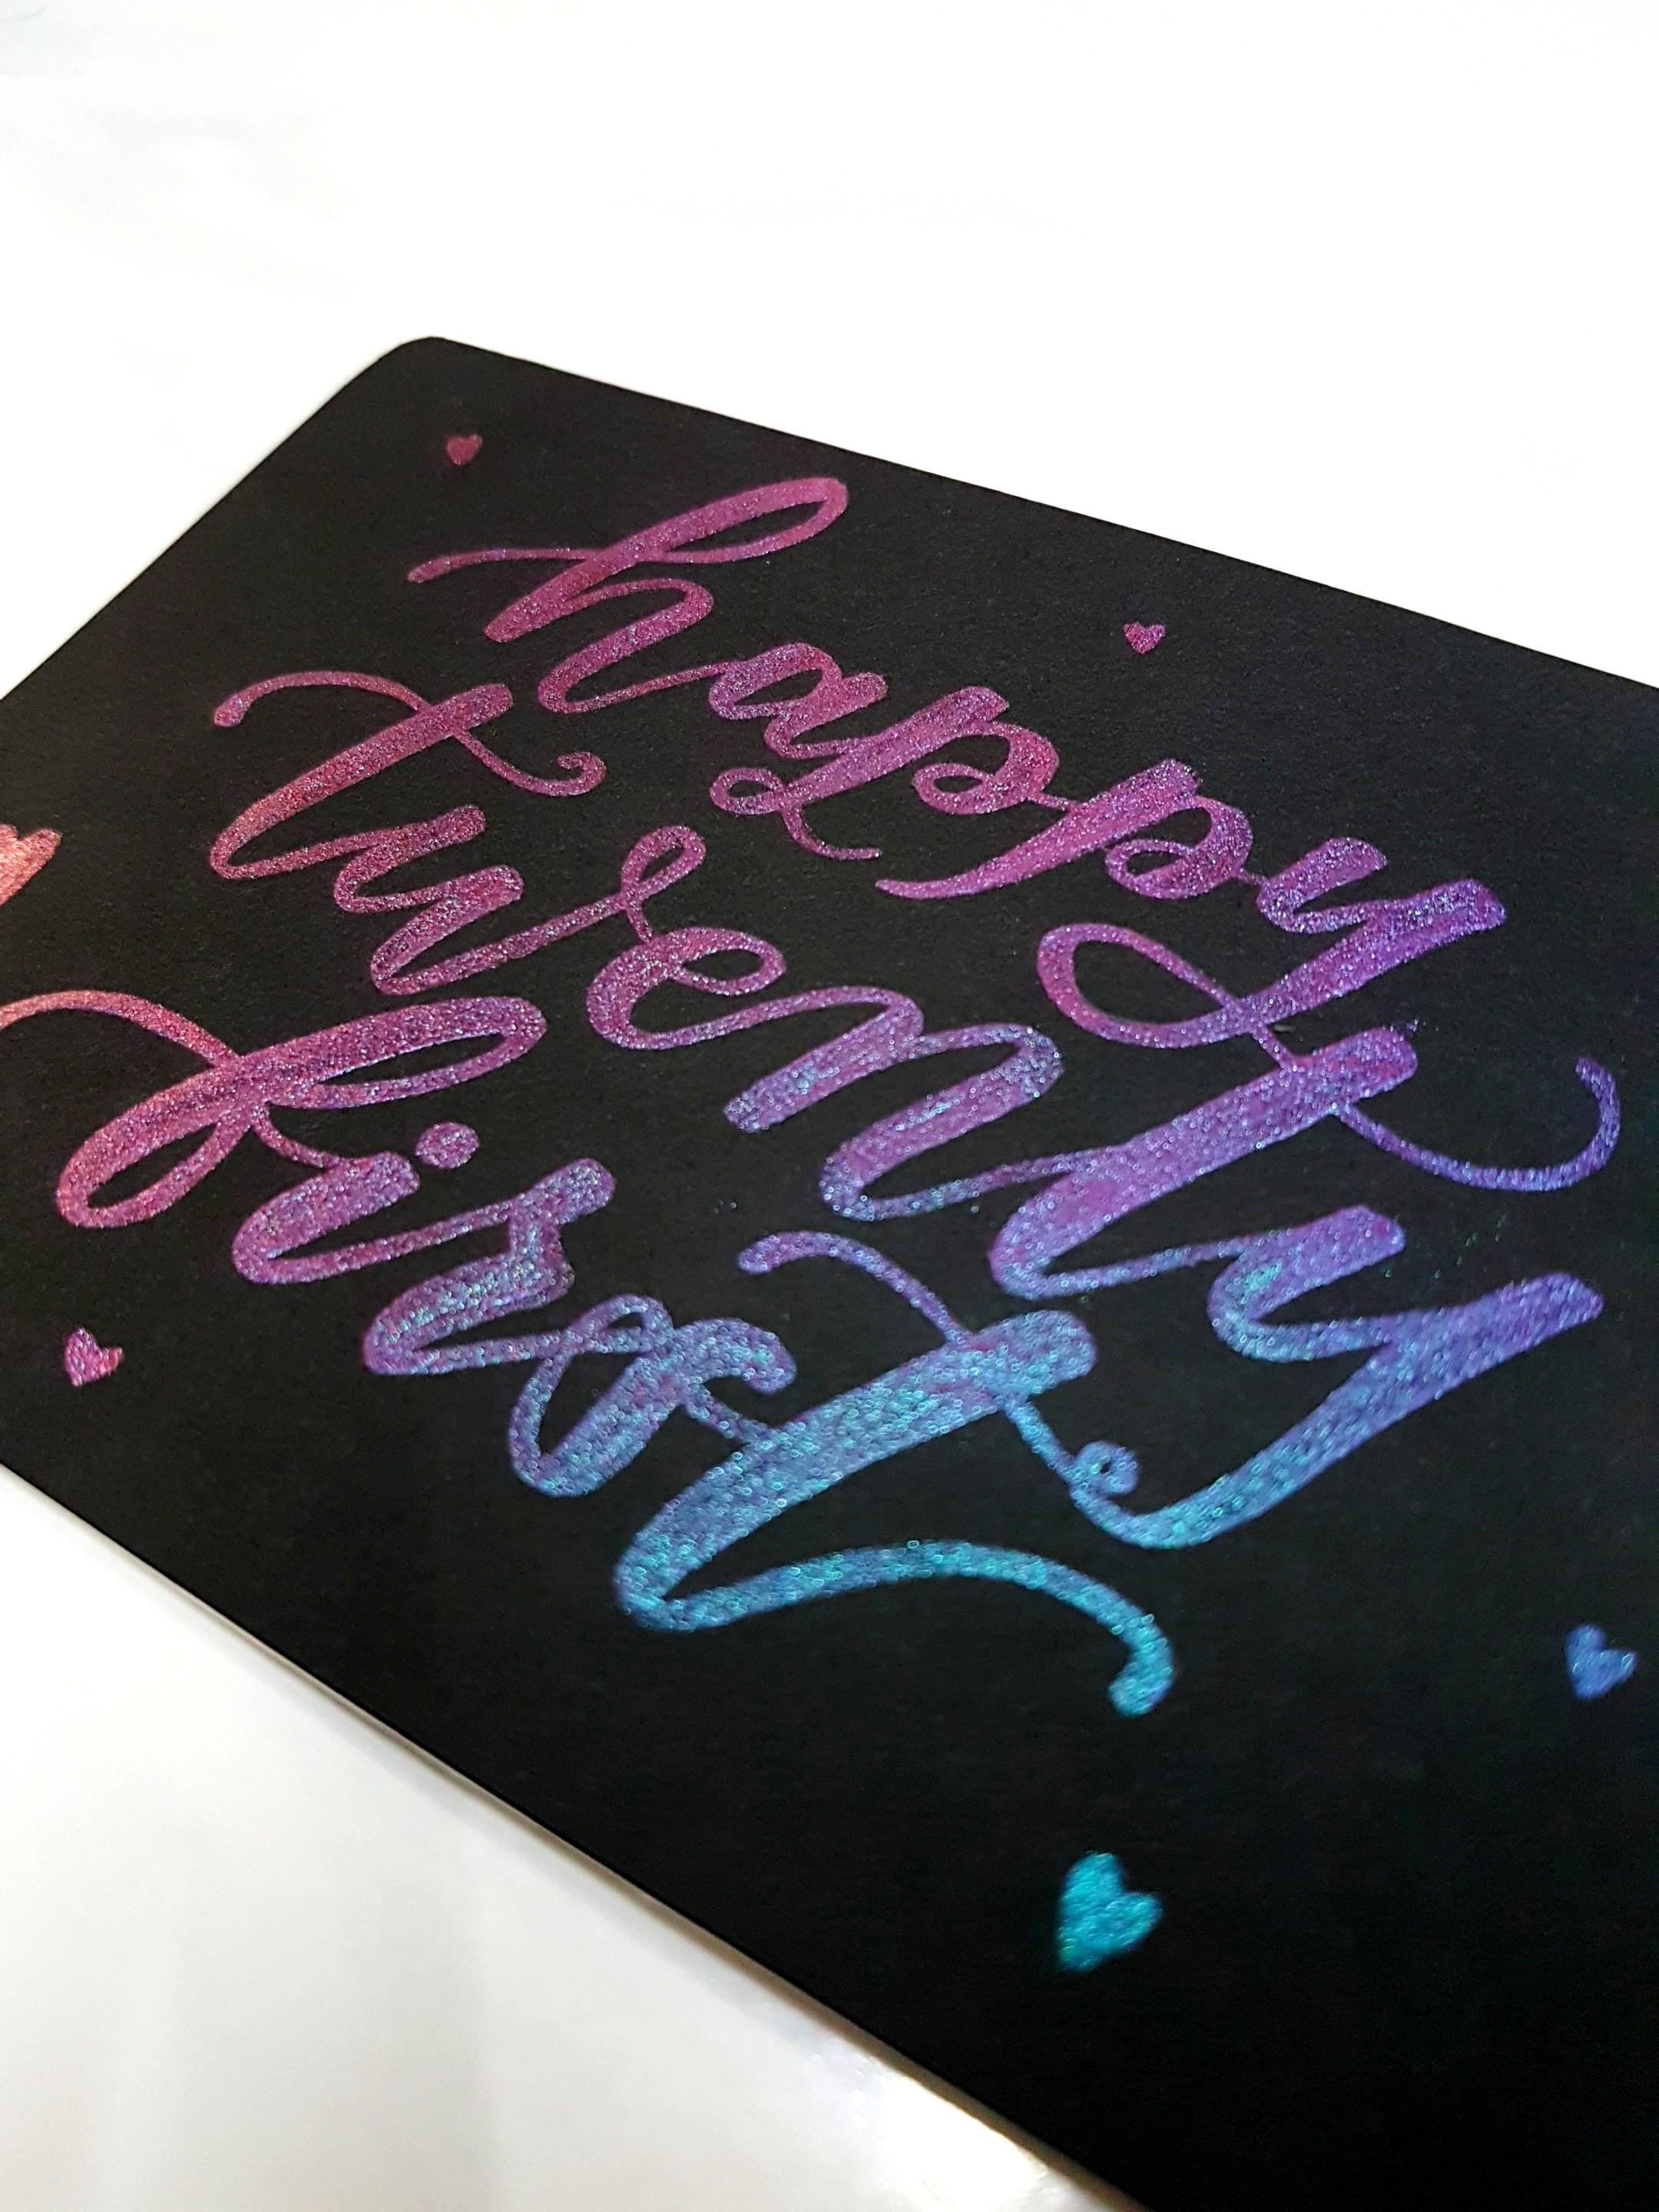 happy
twenty
first